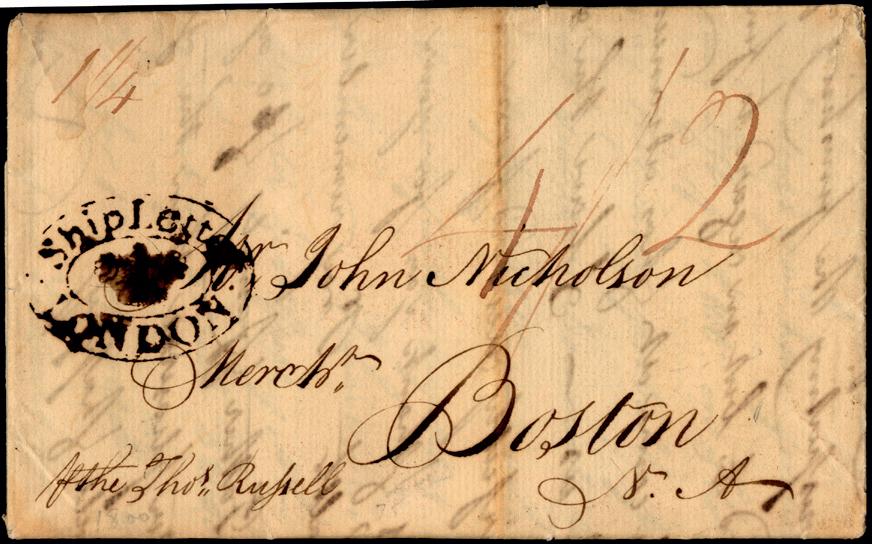 1/4
4/2
Ship Lett
LONDON
Mr. John Nicholson
Mercht.
Boston
N. A.
the Thos. Russell